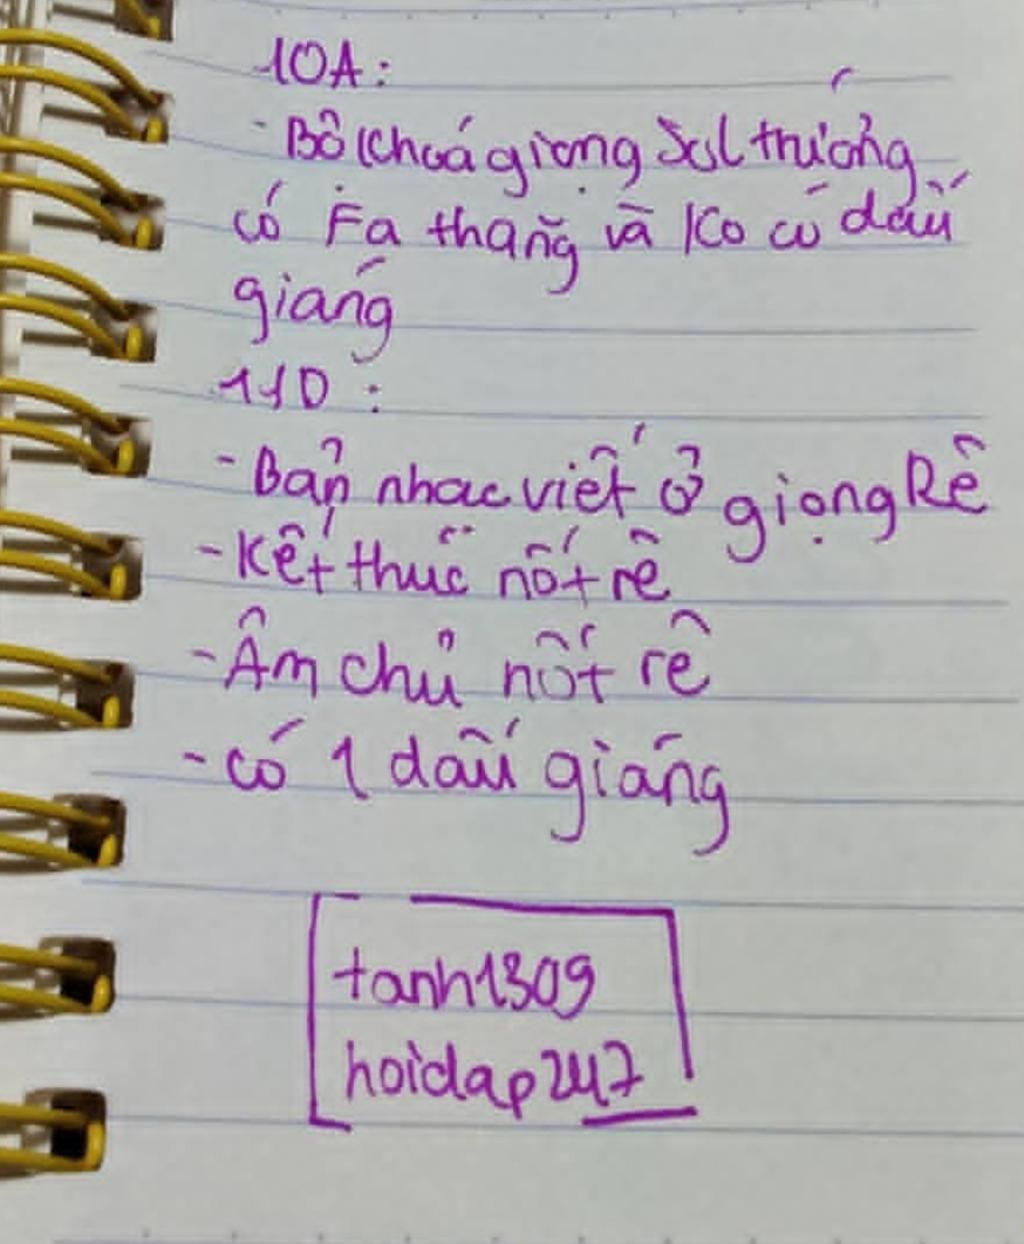 10A:
- Bộ khoá giọng Sol trưởng
có Fa thăng và ko có dấu
giáng
11D :
- Bản nhạc viết ở giọng Rê
- Kết thúc nốt rê
- Âm chủ nốt rê
- có 1 dấu giáng
tanh1309
hoidap247